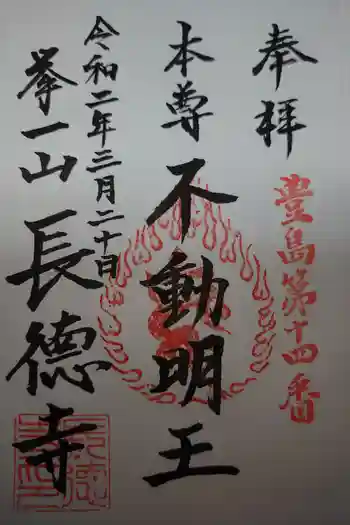 奉拝
豊島第十四番
本尊
不動明王
令和二年三月二十日
拳一山
長徳寺